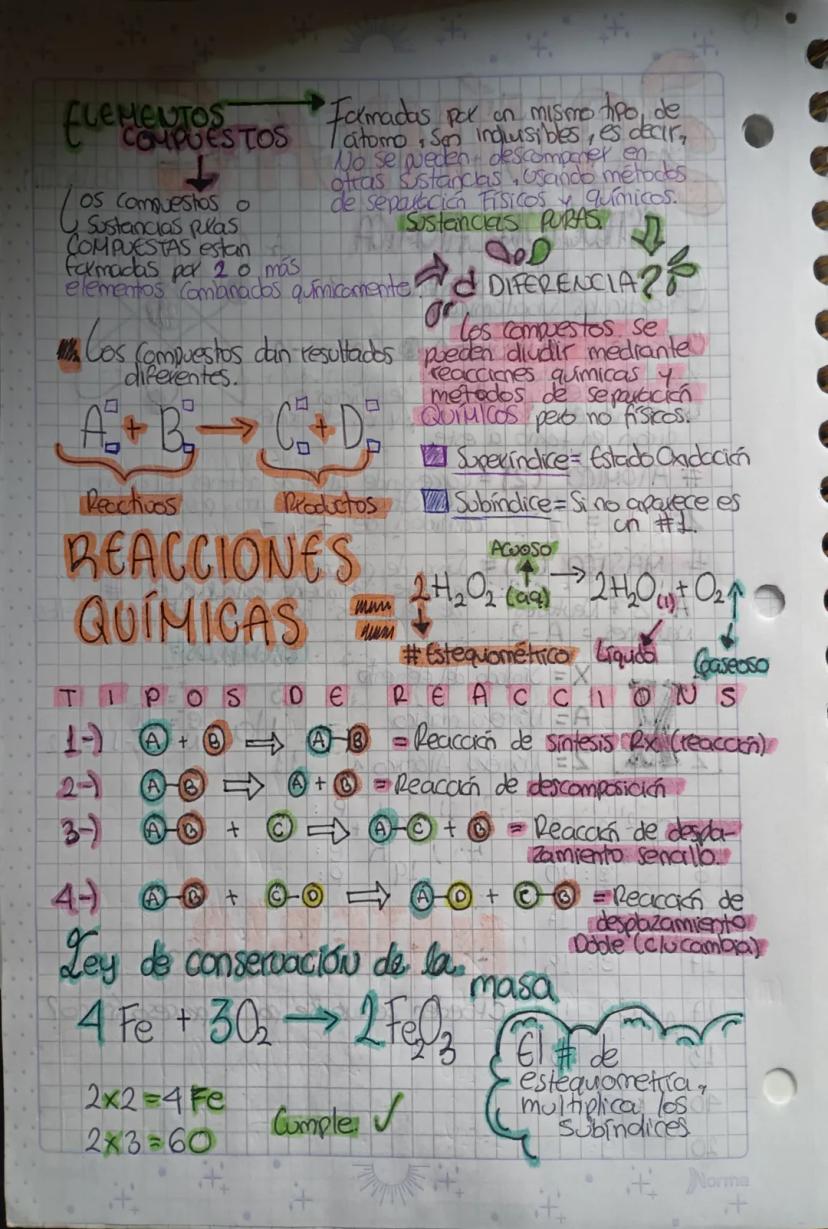 ELEMENTOS → Formadas por un mismo tipo de
COMPUESTOS
átomo, son indivisibles, es decir,
No se pueden descomponer en
otras sustancias, usando métodos
de separación Físicos y químicos.
Los compuestos o
Sustancias puras
COMPUESTAS estan
formadas por 2 o más
elementos combanados químicamente.
SUSTANCIAS PURAS.
d DIFERENCIA?
Los compuestos dan resultados
diferentes.
Los compuestos se
pueden dividir mediante
reacciones químicas y
métodos de separación
QUÍMICOS pero no físicos.
A + B → C + D
Reactivos Productos
Superíndice = Estado Oxidación
Subíndice = Si no aparece es
un #1.
REACCIONES
QUÍMICAS
Acuoso
2H₂O₂ (aq) → 2H₂O(l) + O₂↑
# Estequiométrico Líquido Gaseoso
TIPOS DE REACCIIONS
1-) A + B ⇒ A-B = Reacción de síntesis Rx (reacción)
2-) A-B ⇒ A + B = Reacción de descomposición
3-) A-B + C ⇒ A-C + B = Reacción de despla-
zamiento sencillo.
4-) A-B + C-D ⇒ A-D + C-B = Reacción de
desplazamiento
Doble
Ley de conservación de la
masa
4 Fe + 3O₂ → 2Fe₂O₃
2x2=4 Fe
2x3=6O
Cumple ✓
El # de
estequometría,
multiplica los
subíndices
Norma